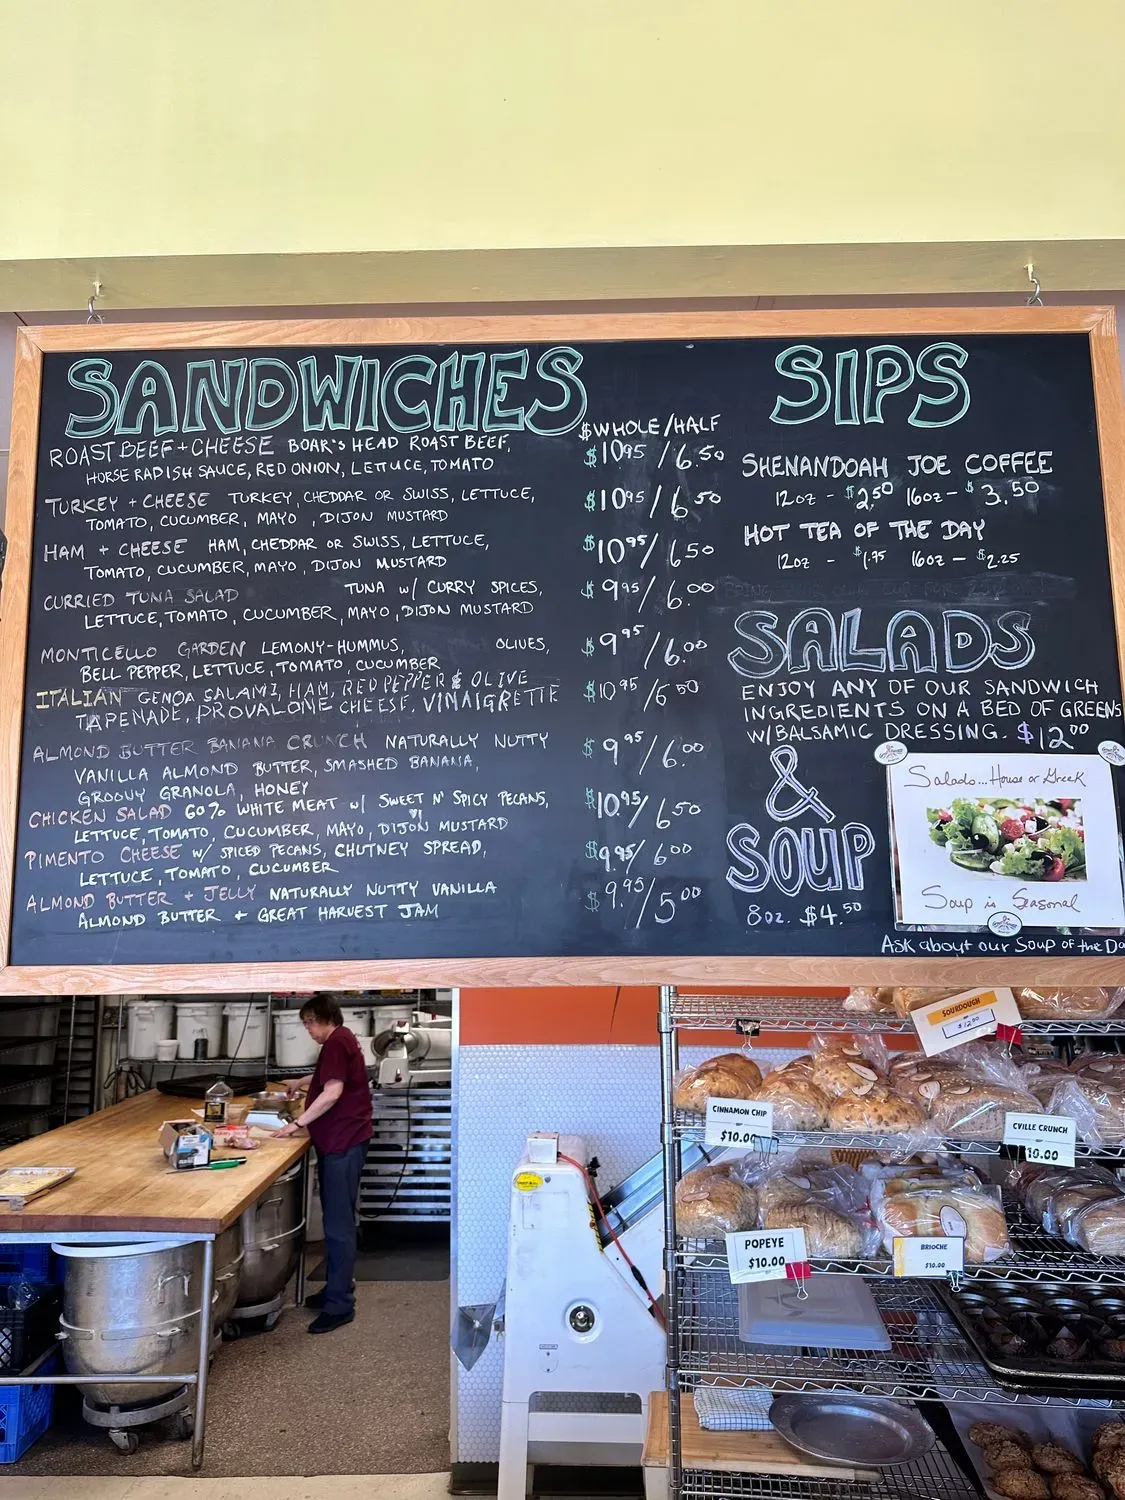 SANDWICHES
$WHOLE/HALF
ROAST BEEF + CHEESE BOAR'S HEAD ROAST BEEF, $10.95 / 6.50
HORSE RADISH SAUCE, RED ONION, LETTUCE, TOMATO
TURKEY + CHEESE TURKEY, CHEDDAR OR SWISS, LETTUCE, $10.95 / 6.50
TOMATO, CUCUMBER, MAYO, DIJON MUSTARD
HAM + CHEESE HAM, CHEDDAR OR SWISS, LETTUCE, $10.95 / 6.50
TOMATO, CUCUMBER, MAYO, DIJON MUSTARD
CURRIED TUNA SALAD TUNA W/ CURRY SPICES, $9.95 / 6.00
LETTUCE, TOMATO, CUCUMBER, MAYO, DIJON MUSTARD
MONTICELLO GARDEN LEMONY-HUMMUS, OLIVES, $9.95 / 6.00
BELL PEPPER, LETTUCE, TOMATO, CUCUMBER
ITALIAN GENOA SALAMI, HAM, RED PEPPER & OLIVE $10.95 / 6.50
TAPENADE, PROVALONE CHEESE, VINAIGRETTE
ALMOND BUTTER BANANA CRUNCH NATURALLY NUTTY $9.95 / 6.00
VANILLA ALMOND BUTTER, SMASHED BANANA,
GROOVY GRANOLA, HONEY
CHICKEN SALAD 60% WHITE MEAT W/ SWEET N' SPICY PECANS, $10.95 / 6.50
LETTUCE, TOMATO, CUCUMBER, MAYO, DIJON MUSTARD
PIMENTO CHEESE W/ SPICED PECANS, CHUTNEY SPREAD, $9.95 / 6.00
LETTUCE, TOMATO, CUCUMBER
ALMOND BUTTER + JELLY NATURALLY NUTTY VANILLA $9.95 / 5.00
ALMOND BUTTER + GREAT HARVEST JAM
SIPS
SHENANDOAH JOE COFFEE
12oz - $2.50 16oz - $3.50
HOT TEA OF THE DAY
12oz - $1.75 16oz - $2.25
SALADS
ENJOY ANY OF OUR SANDWICH
INGREDIENTS ON A BED OF GREENS
W/BALSAMIC DRESSING. $12.00
&
SOUP
8oz. $4.50
Salads...House or Greek
Soup is Seasonal
Ask about our Soup of the Da
SOURDOUGH
$12.00
CINNAMON CHIP
$10.00
CVILLE CRUNCH
10.00
POPEYE
$10.00
BRIOCHE
$10.00